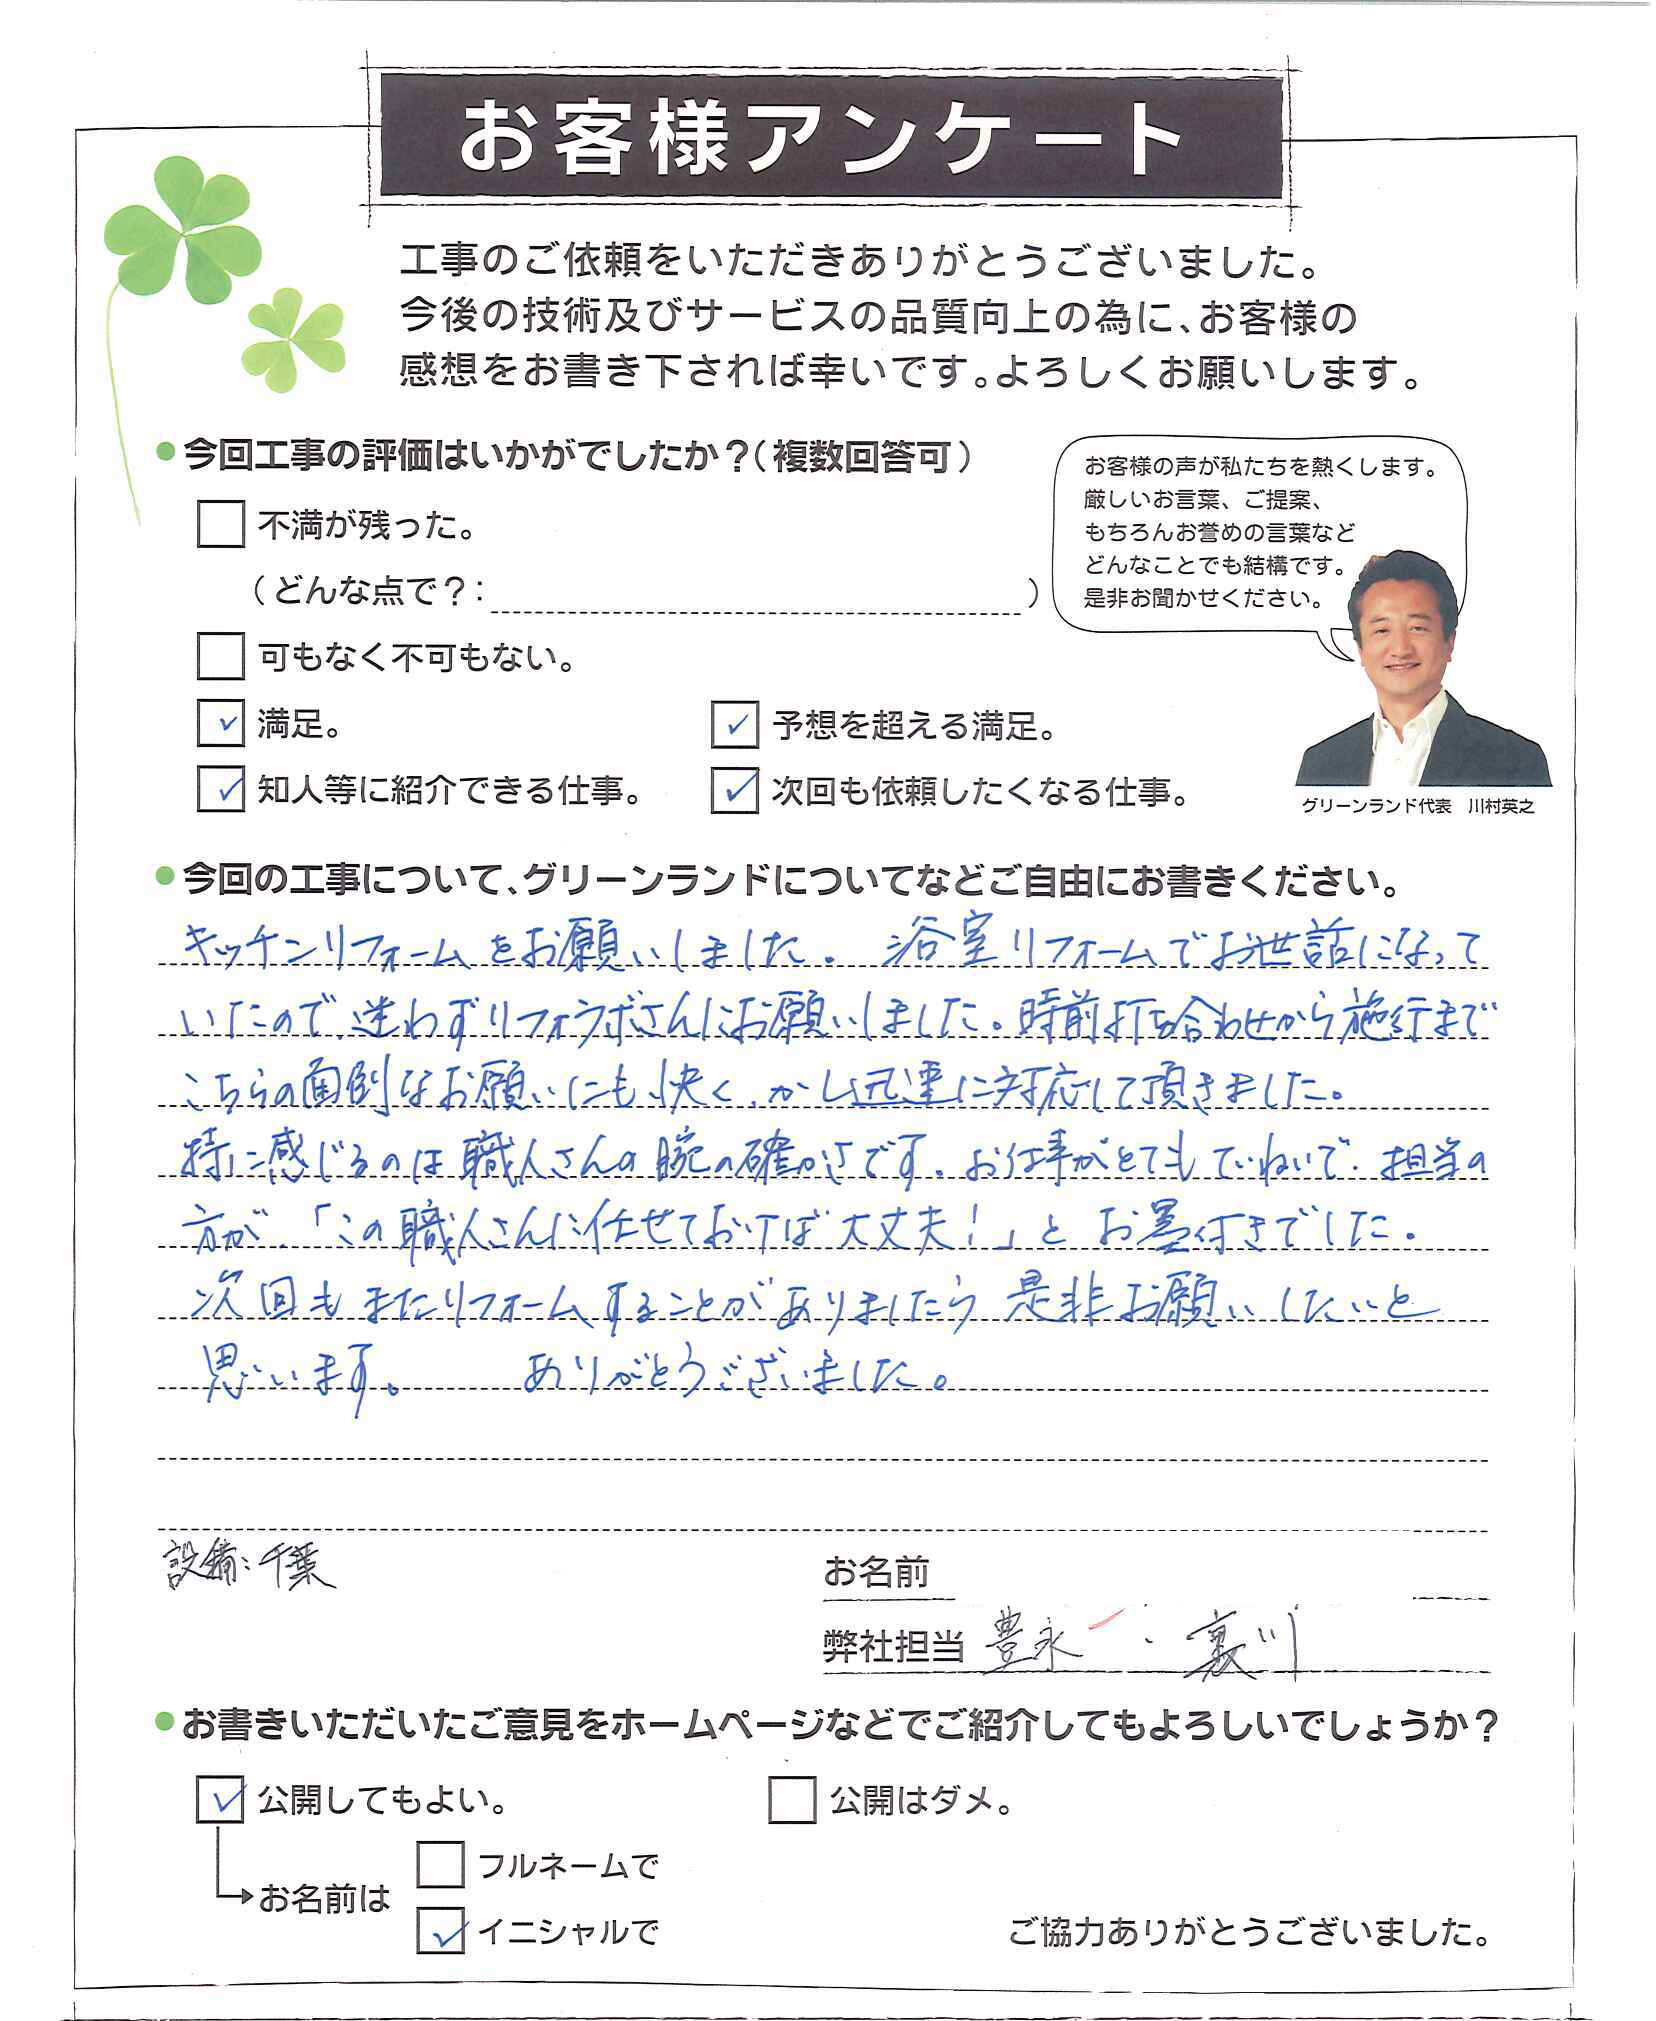 お客様アンケート
工事のご依頼をいただきありがとうございました。
今後の技術及びサービスの品質向上の為に、お客様の
感想をお書き下されば幸いです。よろしくお願いします。
今回工事の評価はいかがでしたか？（複数回答可）
お客様の声が私たちを熱くします。
厳しいお言葉、ご提案、
もちろんお誉めの言葉など
どんなことでも結構です。
是非お聞かせください。
不満が残った。
（どんな点で？：　　）
可もなく不可もない。
✓ 満足。　✓ 予想を超える満足。
✓ 知人等に紹介できる仕事。　✓ 次回も依頼したくなる仕事。
グリーンランド代表　川村英之
今回の工事について、グリーンランドについてなどご自由にお書きください。
キッチンリフォームをお願いしました。浴室リフォームでお世話になって
いたので、迷わずリフォラボさんにお願いしました。時前打ち合わせから施行まで
こちらの面倒なお願いにも快く、かし迅速に対応して頂きました。
特に感じるのは職人さんの腕の確かさです。お仕事がとてもていねいで、担当の
方が、「この職人さんに任せておけば大丈夫！」とお墨付きでした。
次回もまたリフォームすることがありましたら是非お願いしたいと
思います。　ありがとうございました。
設備：千葉
お名前
弊社担当 豊永 ・ 裏川
お書きいただいたご意見をホームページなどでご紹介してもよろしいでしょうか？
✓ 公開してもよい。　公開はダメ。
フルネームで
お名前は
✓ イニシャルで
ご協力ありがとうございました。